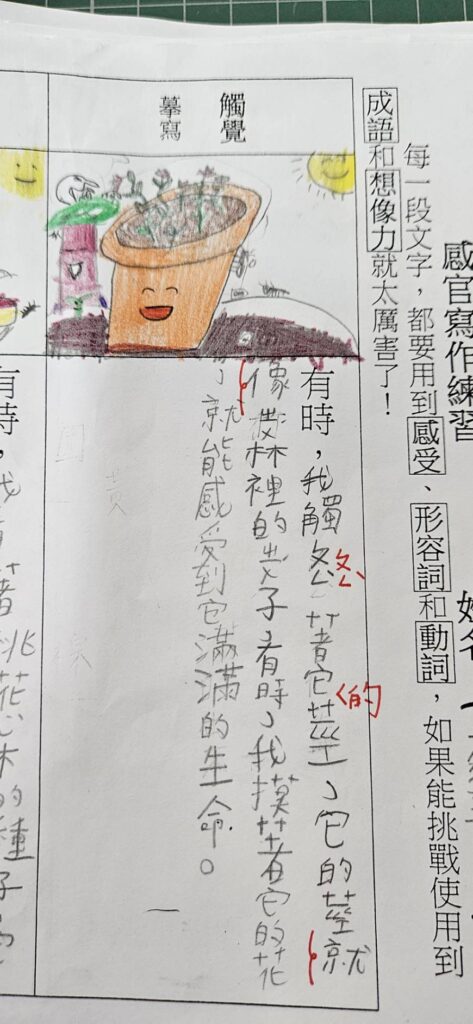 感官寫作練習
姓名
每一段文字，都要用到感受、形容詞和動詞，如果能挑戰使用到
成語和想像力就太厲害了！
觸覺
摹寫
有時，我觸忽著它莖，它的莖就
忽
的
像森林裡的蚊子有時，我摸著它的花
，就能感受到它滿滿的生命。
有時，我看著桃花心木的種子，